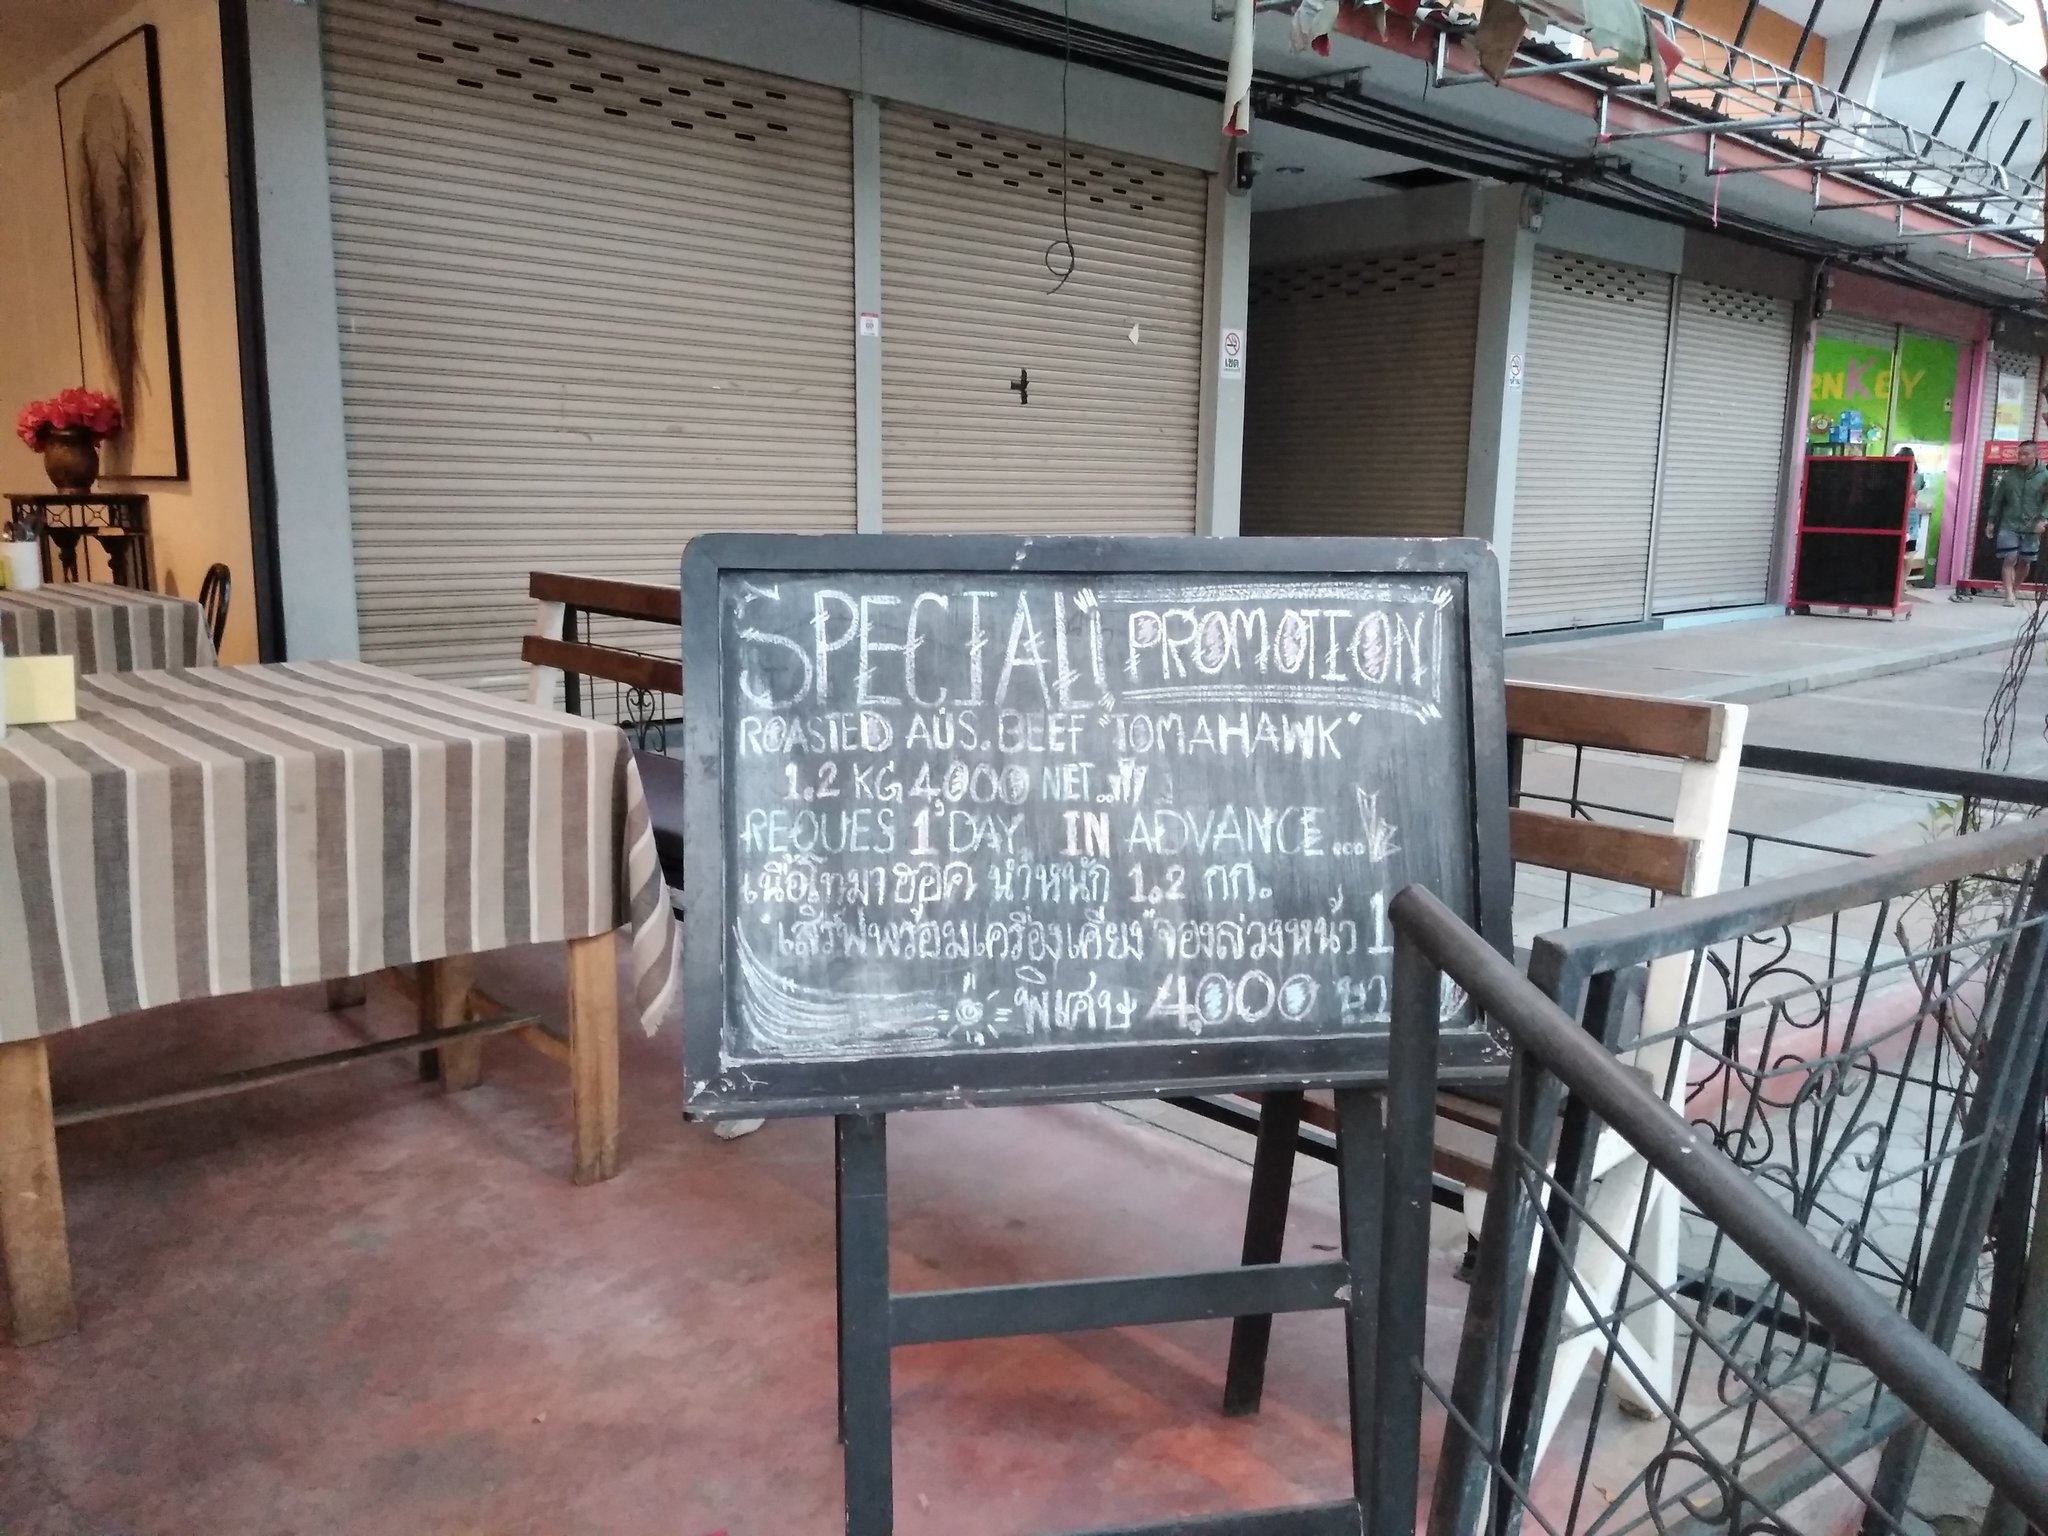 SPECIAL! PROMOTION
ROASTED AUS. BEEF "TOMAHAWK"
1.2 KG 4,000 NET..
REQUES 1 DAY IN ADVANCE...
เนื้อโทมาฮอค น้ำหนัก 1.2 กก.
"เสริฟพร้อมเครื่องเคียง" จองล่วงหน้า 1
พิเศษ 4,000
RNKEY
เขต